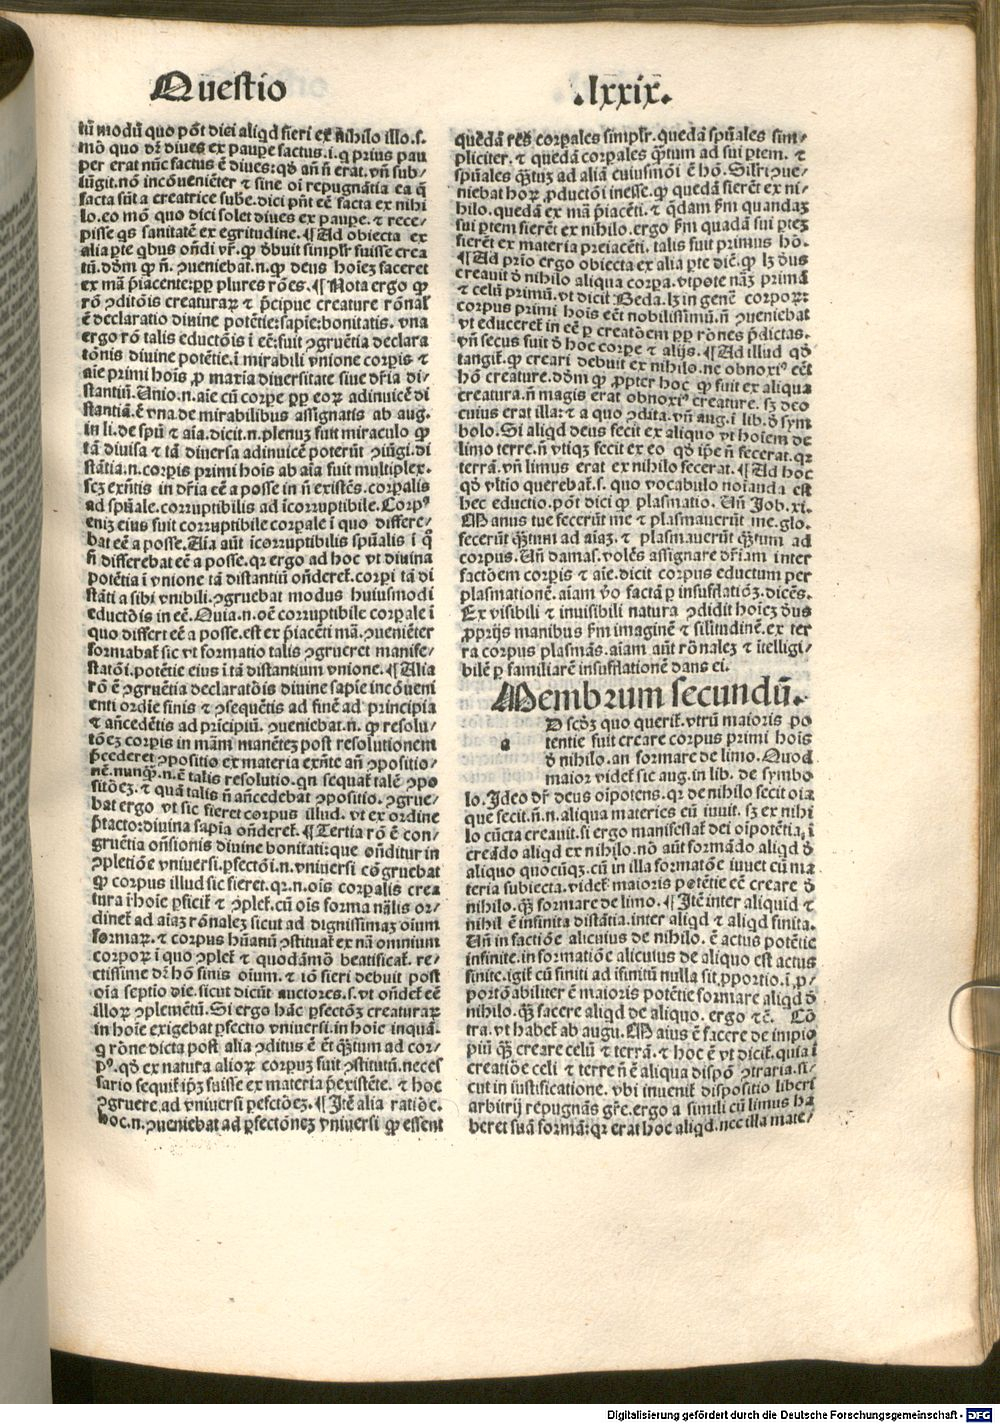 Questio .lxxix.
tũ modũ quo põt dici aliqd fieri ex nihilo illo.s.
mõ quo dr̃ diues ex paupe factus.i.q prius pau
per erat nũc factus ẽ diues: qđ añ ñ erat. vñ sub/
iũgit.nõ incõueniẽter ⁊ sine oĩ repugnãtia ea q̃
facta sũt a creatrice sube.dici pñt eẽ facta ex nihi
lo.eo mõ quo dici solet diues ex paupe.⁊ rece/
pisse qs sanitatẽ ex egritudine.¶Ad obiecta ex
alia pte qbus oñdi vr̃.ꝙ đbuit simplr̃ fuisse crea
tũ.đđm ꝙ ñ.ꝯueniebat.n.ꝙ deus hoiez faceret
ex mã p̃iacente:pp plures rões.¶Nota ergo ꝙ
rõ ꝯditõis creaturaꝝ ⁊ p̃cipue creature rõnal̃
ẽ declaratio diuine potẽtie:sapie:bonitatis. vna
ergo rõ talis eductõis ĩ eẽ:fuit ꝯgruẽtia declara
tõnis diuine potẽtie.ĩ mirabili vnione corpis ⁊
aĩe primi hoĩs ꝓ maxĩa diuersitate siue dr̃ĩa di/
stantiũ.Unio.n.aĩe cũ corpe pp eoꝝ adinuicẽ di
stantiã.ẽ vna.de mirabilibus assignatis ab aug.
in li.de spũ ⁊ aĩa.dicit.n.plenuz fuit miraculo ꝙ
tã diuisa ⁊ tã diuersa adinuicẽ poterũt ꝯiũgi.di
stãtia.n.corpis primi hoĩs ab aĩa fuit multiplex.
scz exñtis in dr̃ia eẽ a posse in ñ existẽs.corpalis
ad spũale.corruptibilis ad ĩcorruptibile.Corpꝰ
eniz eius fuit corruptibile corpale ĩ quo differe/
bat eẽ a posse.Aĩa aũt ĩcorruptibilis spũalis ĩ q̃
ñ differebat eẽ a posse.qr ergo ad hoc vt diuina
potẽtia ĩ vnione tã distantiũ oñderet̃.corpi tã di
stãti a sibi vnibili.ꝯgruebat modus huiusmodi
eductõis in eẽ.Quia.n.oẽ corruptibile corpale ĩ
quo differt eẽ a posse.est ex p̃iacẽti mã.ꝯueniẽter
formabat̃ sic vt formatio talis ꝯgrueret manife/
statõĩ.potẽtie eius ĩ tã distantium vnione.¶Alia
rõ ẽ ꝯgruẽtia declaratõis diuine sapie incõueni
enti ordĩe finis ⁊ ꝯsequẽtis ad finẽ ad principia
⁊ añcedẽtis ad prĩcipiũ. ꝯueniebat.n. ꝙ resolu/
tõez corpis in mãm manẽtez post resolutionem
p̃cederet ꝯpositio ex materia exñte añ ꝯpositio/
nẽ.nunqꝫ.n.ẽ talis resolutio.qn sequat̃ talẽ ꝯpo
sitõez.⁊ quã talis ñ añcedebat ꝯpositio. ꝯgrue/
bat ergo vt sic fieret corpus illud. vt ex ordine
p̃tacto:diuina sapĩa oñderet̃.¶Tertia rõ ẽ con/
gruẽtia oñsionis diuine bonitati:que oñditur in
ꝯpletiõe vniuersi.pfectõĩ.n.vniuersi cõgruebat
ꝙ corpus illud sic fieret.qr.n.oĩs corpalis crea
tura ĩ hoĩe pficit̃ ⁊ ꝯplet̃.cũ oĩs forma nãlis or/
dinet̃ ad aĩaz rõnalez sicut ad dignissimaz oĩum
formaꝝ.⁊ corpus hũanũ ꝯstituat̃ ex nã omnium
corpoꝝ ĩ quo ꝯplet̃ ⁊ quodãmõ beatificat̃. re/
ctissime dr̃ hõ finis oĩum.⁊ iõ fieri debuit post
oĩa septio die.sicut dicũt auctores.s.vt oñdet̃ eẽ
illoꝝ ꝯplemẽtũ.Si ergo hãc pfectõz creaturaꝝ
in hoĩe exigebat pfectio vniuersi.in hoĩe inquã.
q rõne dicta post alia ꝯditus ẽ ẽt qꝫtum ad cor/
pꝰ.qđ ex natura alioꝝ corpuz fuit ꝯstitutũ.neces
sario sequit̃ ip̃z fuisse ex materia p̃existẽte. ⁊ hoc
ꝯgruere.ad vniuersi pefctõez.¶Itẽ alia ratiõe.
hoc.n.ꝯueniebat ad pfectõnez vniuersi ꝙ essent
quedã res corpales simplr̃.quedã spũales sim/
pliciter.⁊ quedã corpales qꝫtum ad sui ptem. ⁊
spũales qꝫtuz ad aliã cuiusmõi ẽ hõ.Silr̃i ꝯue/
niebat hoꝝ ꝓductõĩ inesse.ꝙ quedã fierẽt ex ni/
hilo.quedã ex mã p̃iacẽti.⁊ q̃dam fm quandaz
sui ptem fierẽt ex nihilo.ergo fm quadã sui ptez
fierẽt ex materia preiacẽti.talis fuit primus hõ.
¶Ad prĩo ergo obiecta ex alia pte dĩc̃.ꝙ lꝫ đũs
creauit đ nihilo aliqua corpa.vtpote naz primã
⁊ celũ primũ.vt dicit Beda.lꝫ in genẽ corpoꝝ:
corpus primi hoĩs eẽt nobilissimũ.ñ ꝯueniebat
vt educeret̃ in eẽ p creatõem pp rõnes p̃dictas.
vñ secus fuit đ hoc corpe ⁊ alijs.¶Ad illud qđ
tangit̃.ꝙ creari debuit ex nihilo.ne obnoxiꝰ eẽt
hõ creature.đđm ꝙ ꝓpter hoc ꝙ fuit ex aliqua
creatura.ñ magis erat obnoxiꝰ creature.sꝫ deo
cuius erat illa:⁊ a quo ꝯdita.vñ aug.ĩ lib.đ sym
bolo.Si aliqđ deus fecit ex aliquo vt hoĩem de
limo terre.ñ vtiqꝫ fecit ex eo qđ ip̃e ñ fecerat.qr
terrã.vñ limus erat ex nihilo fecerat.¶Ad hoc
qđ vltio querebat̃.s. quo vocabulo noĩanda est
hec eductio.põt dici ꝙ plasmatio. Uñ Job.xi.
Manus tue fecerũt me ⁊ plasmauerũt me.glo.
fecerũt qꝫtum ad aĩaz. ⁊ plasmauerũt qꝫtum ad
corpus.Uñ damas.volẽs assignare dr̃iam inter
factõem corpis ⁊ aĩe.dicit corpus eductum per
plasmationẽ.aĩam ṽo facta p insufflatiõz.dicẽs.
Ex visibili ⁊ inuisibili natura ꝯdidit hoĩez đũs
ꝓprijs manibus fm imaginẽ ⁊ silitudinẽ.ex ter
ra corpus plasmãs.aĩam aũt rõnalez ⁊ ĩtelligi/
bilẽ p familiarẽ insufflationẽ dans ei.
Membrum secundũ.
a
D scđz quo querit̃.vtrũ maioris po
tentie fuit creare corpus primi hoĩs
đ nihilo.an formare de limo.Quod
maior videt̃ sic aug.in lib. de symbo
lo.Ideo dr̃ deus oĩpotens.qr de nihilo fecit oĩa
que fecit.ñ.n.aliqua materies eũ iuuit. sꝫ ex nihi
lo cũcta creauit.si ergo manifestat̃ dei oĩpotẽtia.ĩ
creãdo aliqđ ex nihilo.nõ aũt formãdo aliqđ đ
aliquo quocũqꝫ.cũ in illa formatõe iuuet cũ ma
teria subiecta.videt̃ maioris potẽtie eẽ creare đ
nihilo.qꝫ formare de limo.¶Itẽ inter aliquid ⁊
nihil ẽ infinita distãtia.inter aliqđ ⁊ aliqđ finita.
Uñ in factiõe alicuius de nihilo. ẽ actus potẽtie
infinite.in formatiõe alicuius de aliquo est actus
finite.igit̃ cũ finiti ad ĩfinitũ nulla sit ꝓportio.ĩ ꝓ/
portõabiliter ẽ maioris potẽtie formare aliqđ đ
nihilo.qꝫ facere aliqđ de aliquo. ergo ⁊c̃. Cõ
tra.vt habet̃ ab augu.Maius ẽ facere de impio
piũ qꝫ creare celũ ⁊ terrã.⁊ hoc ẽ vt dicit̃.quia ĩ
creatiõe celi ⁊ terre ñ ẽ aliqua dispõ ꝯtraria.si/
cut in iustificatione. vbi inuenit̃ dispositio liberi
arbitrij repugnãs gr̃e.ergo a simili cũ limus ha
beret suã formã:qr erat hoc aliqđ.nec illa mate/
Digitalisierung gefördert durch die Deutsche Forschungsgemeinschaft - DFG